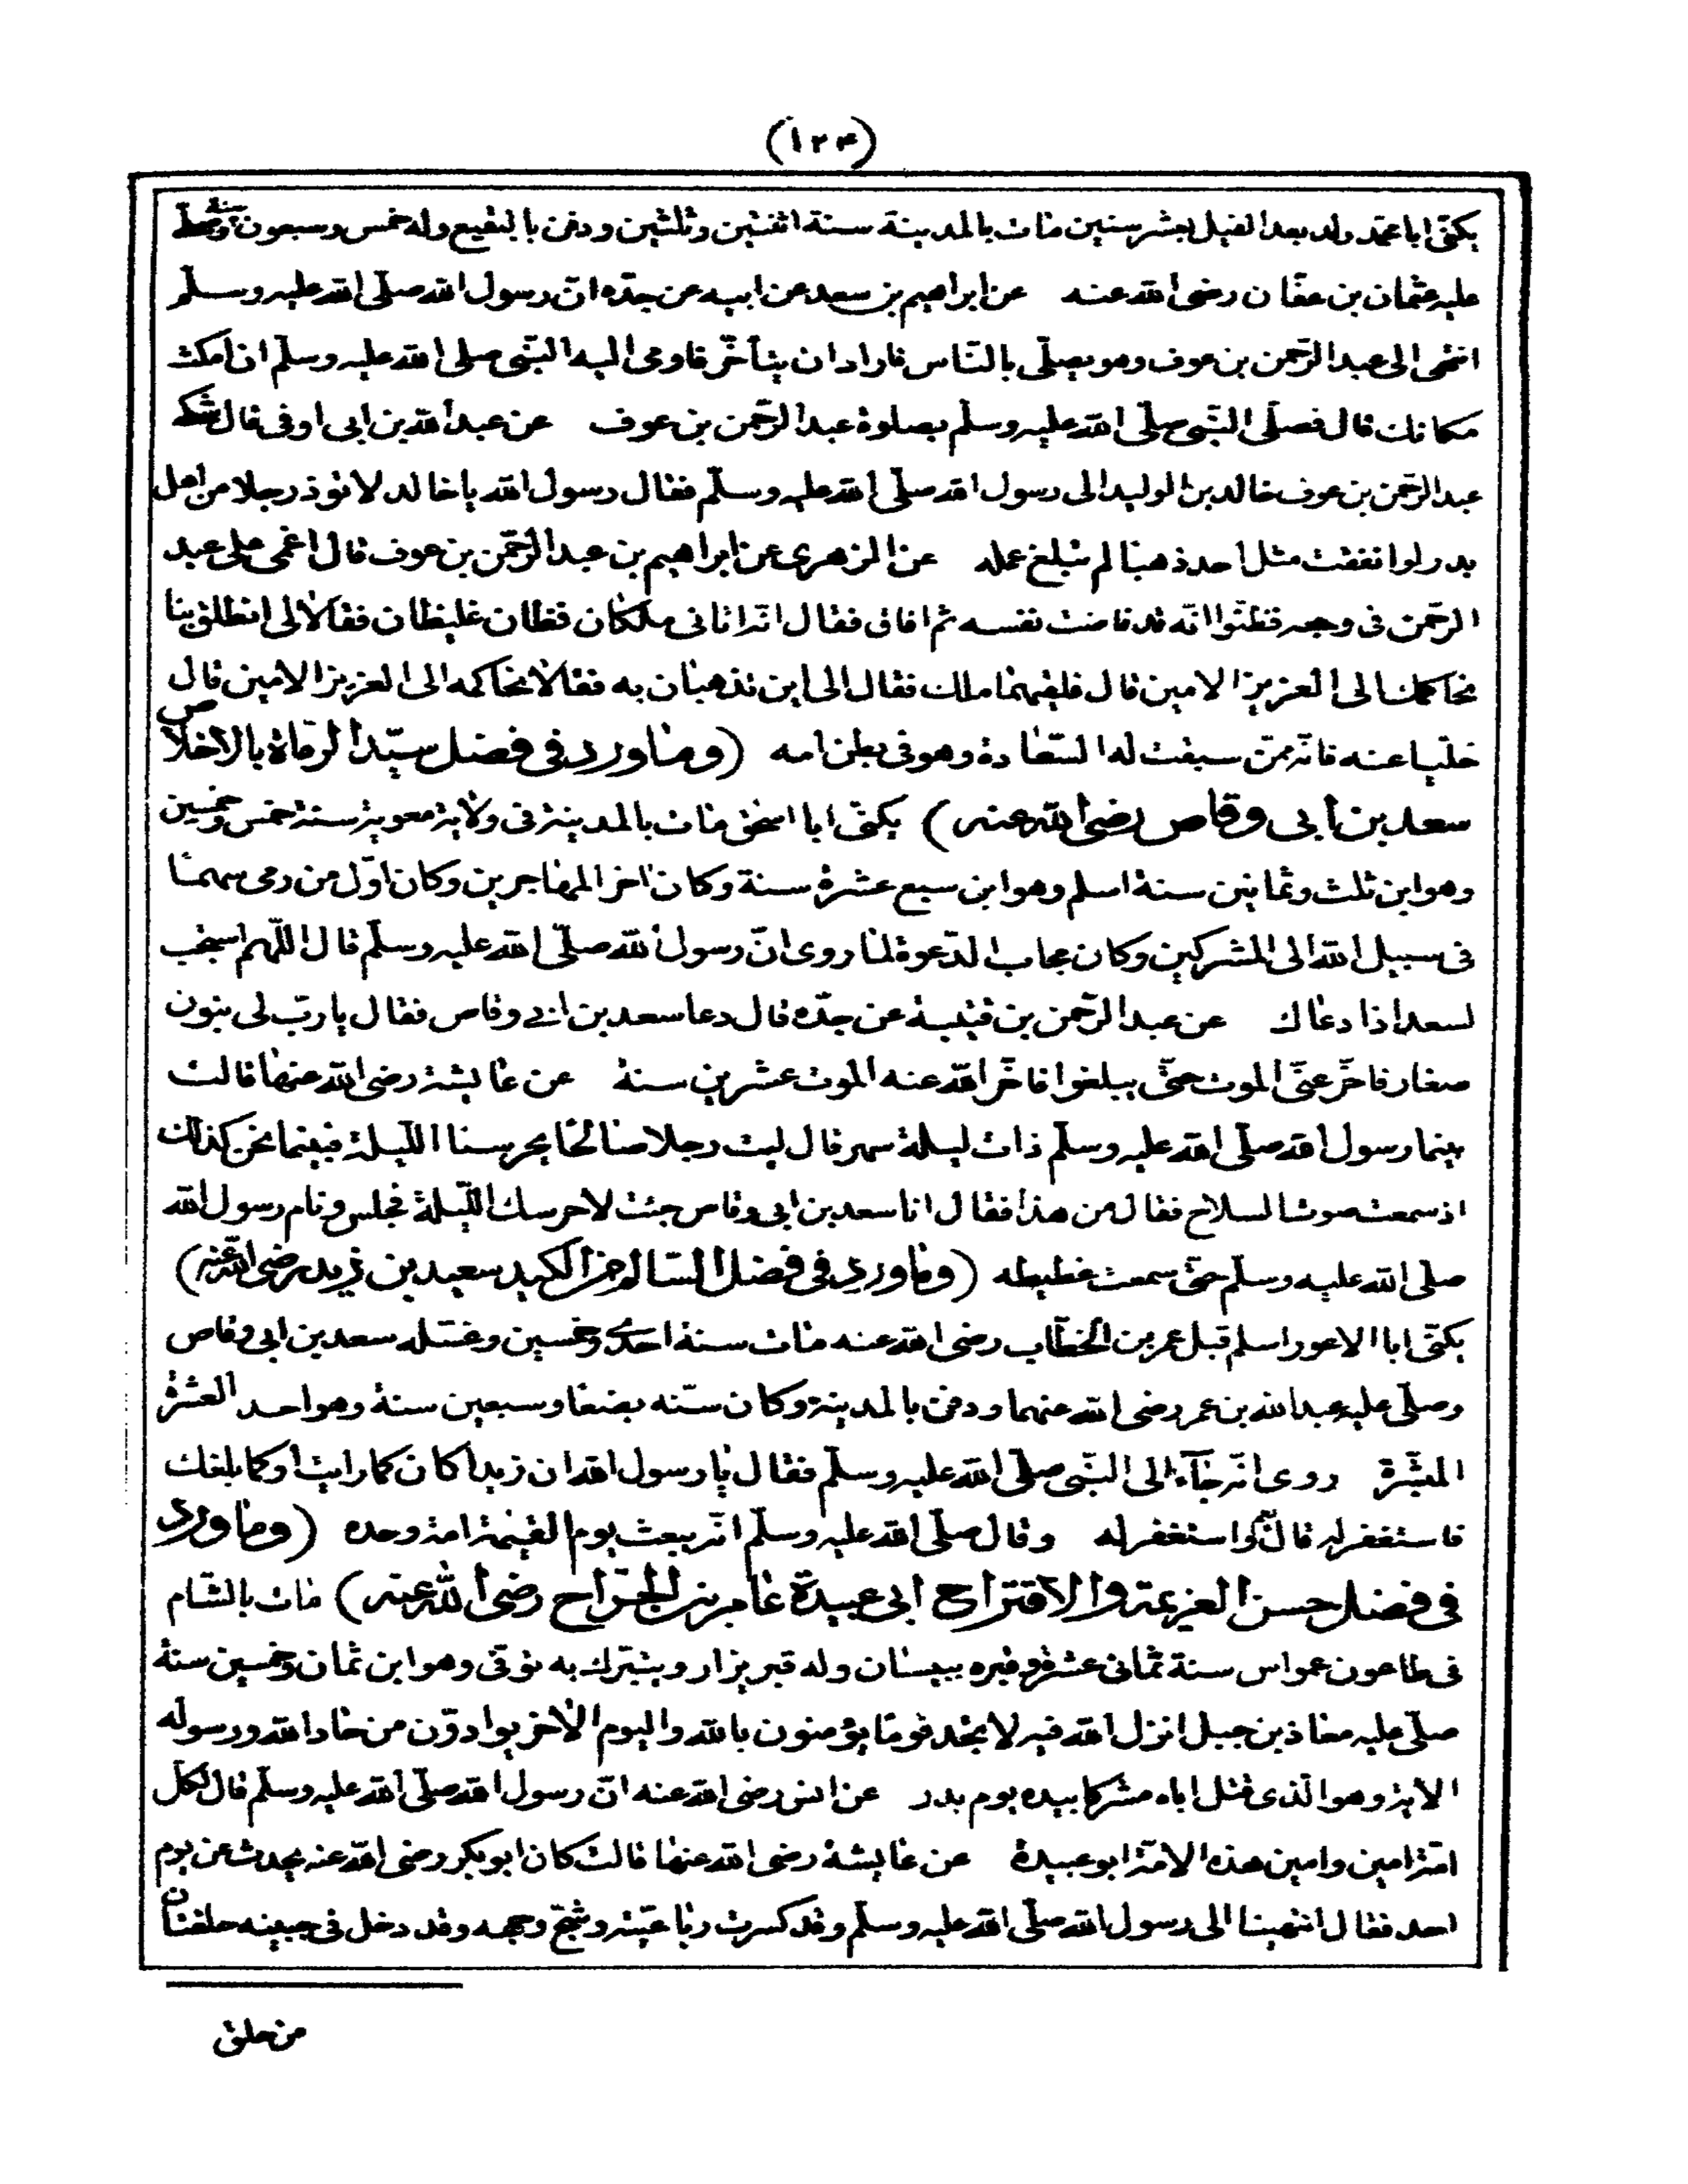 (١٢٤)
يكنّى ابا محمّد ولد بعد الفيل بعشر سنين مات بالمدينة سنة اثنتين وثلثين ودفن بالبقيع وله خمس وسبعون سنة وصلّى
عليه عثمان بن عفّان رضى الله عنه عن ابراهيم بن سعد عن ابيه عن جدّه انّ رسول الله صلّى الله عليه وسلّم
انتهى الى عبد الرّحمن بن عوف وهو يصلّى بالنّاس فاراد ان يتأخّر فاومى اليه النّبى صلى الله عليه وسلّم ان امكث
مكانك قال فصلّى النّبى صلّى الله عليه وسلّم بصلوة عبد الرّحمن بن عوف عن عبد الله بن ابى اوفى قال شكى
عبد الرّحمن بن عوف خالد بن الوليد الى رسول الله صلّى الله عليه وسلّم فقال رسول الله يا خالد لا تؤذ رجلا من اهل
بدر لو انفقت مثل احد ذهبا لم تبلغ عمله عن الزهرى عن ابراهيم بن عبد الرّحمن بن عوف قال اغمى على عبد
الرّحمن فى وجعه فظنّوا انّه قد فاضت نفسه ثم افاق فقال انّه اتانى ملكان فظّان غليظان فقالا لى انطلق بنا
نحاكمك الى العزيز الامين قال فلقيهما ملك فقال الى اين تذهبان به فقالا نحاكمه الى العزيز الامين قال
خلّيا عنه فانّه ممّن سبقت له السّعادة وهو فى بطن امه (وما ورد فى فضل سيّد الرماة بالاخلاص
سعد بن ابى وقاص رضى الله عنه) يكنّى ابا اسحق مات بالمدينة فى ولاية معوية سنة خمس وخمسين
وهو ابن ثلث وثمانين سنة اسلم وهو ابن سبع عشرة سنة وكان اخر المهاجرين وكان اوّل من رمى سهما
فى سبيل الله الى المشركين وكان مجاب الدّعوة لما روى انّ رسول الله صلّى الله عليه وسلّم قال اللّهم استجب
لسعد اذا دعاك عن عبد الرّحمن بن قتيبة عن جدّه قال دعا سعد بن ابى وقاص فقال يا ربّ لى بنون
صغار فاخّر عنّى الموت حتّى يبلغوا فاخّر الله عنه الموت عشرين سنة عن عايشة رضى الله عنها قالت
بينما رسول الله صلّى الله عليه وسلّم ذات ليلة سهر قال ليت رجلا صالحا يحرسنا الليلة فبينما نحن كذلك
اذ سمعت صوت السلاح فقال من هذا فقال انا سعد بن ابى وقاص جئت لاحرسك اللّيلة فجلس ونام رسول الله
صلى الله عليه وسلّم حتى سمعت غطيطه (وما ورد فى فضل السّالم من الكيد سعيد بن زيد رضى الله عنه)
يكنّى ابا الاعور اسلم قبل عمر بن الخطّاب رضى الله عنه مات سنة احدى وخمسين وغسّله سعد بن ابى وقاص
وصلّى عليه عبد الله بن عمر رضى الله عنهما ودفن بالمدينة وكان سنّه بضعا وسبعين سنة وهو احد العشرة
المبشّرة روى انّه جآء الى النّبى صلّى الله عليه وسلّم فقال يا رسول الله ان زيدا كان كما رايت او كما بلغك
فاستغفر له قال استغفر له وقال صلّى الله عليه وسلّم انّه يبعث يوم القيمة امة وحده (وما ورد
فى فضل حسن العزيمة والاقتراح ابى عبيدة عامر بن الجرّاح رضى الله عنه) مات بالشّام
فى طاعون عمواس سنة ثمانى عشرة وقبره ببيسان وله قبر يزار ويتبرك به توفى وهو ابن ثمان وخمسين سنة
صلّى عليه معاذ بن جبل انزل الله فيه لا تجد قوما يؤمنون بالله واليوم الاخر يوادّون من حاد الله ورسوله
الاية وهو الّذى قتل اباه مشركا بيده يوم بدر عن انس رضى الله عنه انّ رسول الله صلّى الله عليه وسلّم قال لكلّ
امّة امين وامين هذه الامّة ابو عبيدة عن عايشة رضى الله عنها قالت كان ابو بكر رضى الله عنه يحدث عن يوم
احد فقال انتهينا الى رسول الله صلّى الله عليه وسلّم وقد كسرت رباعيّته وشجّ وجهه وقد دخل فى جبينه حلقتان
من حلق